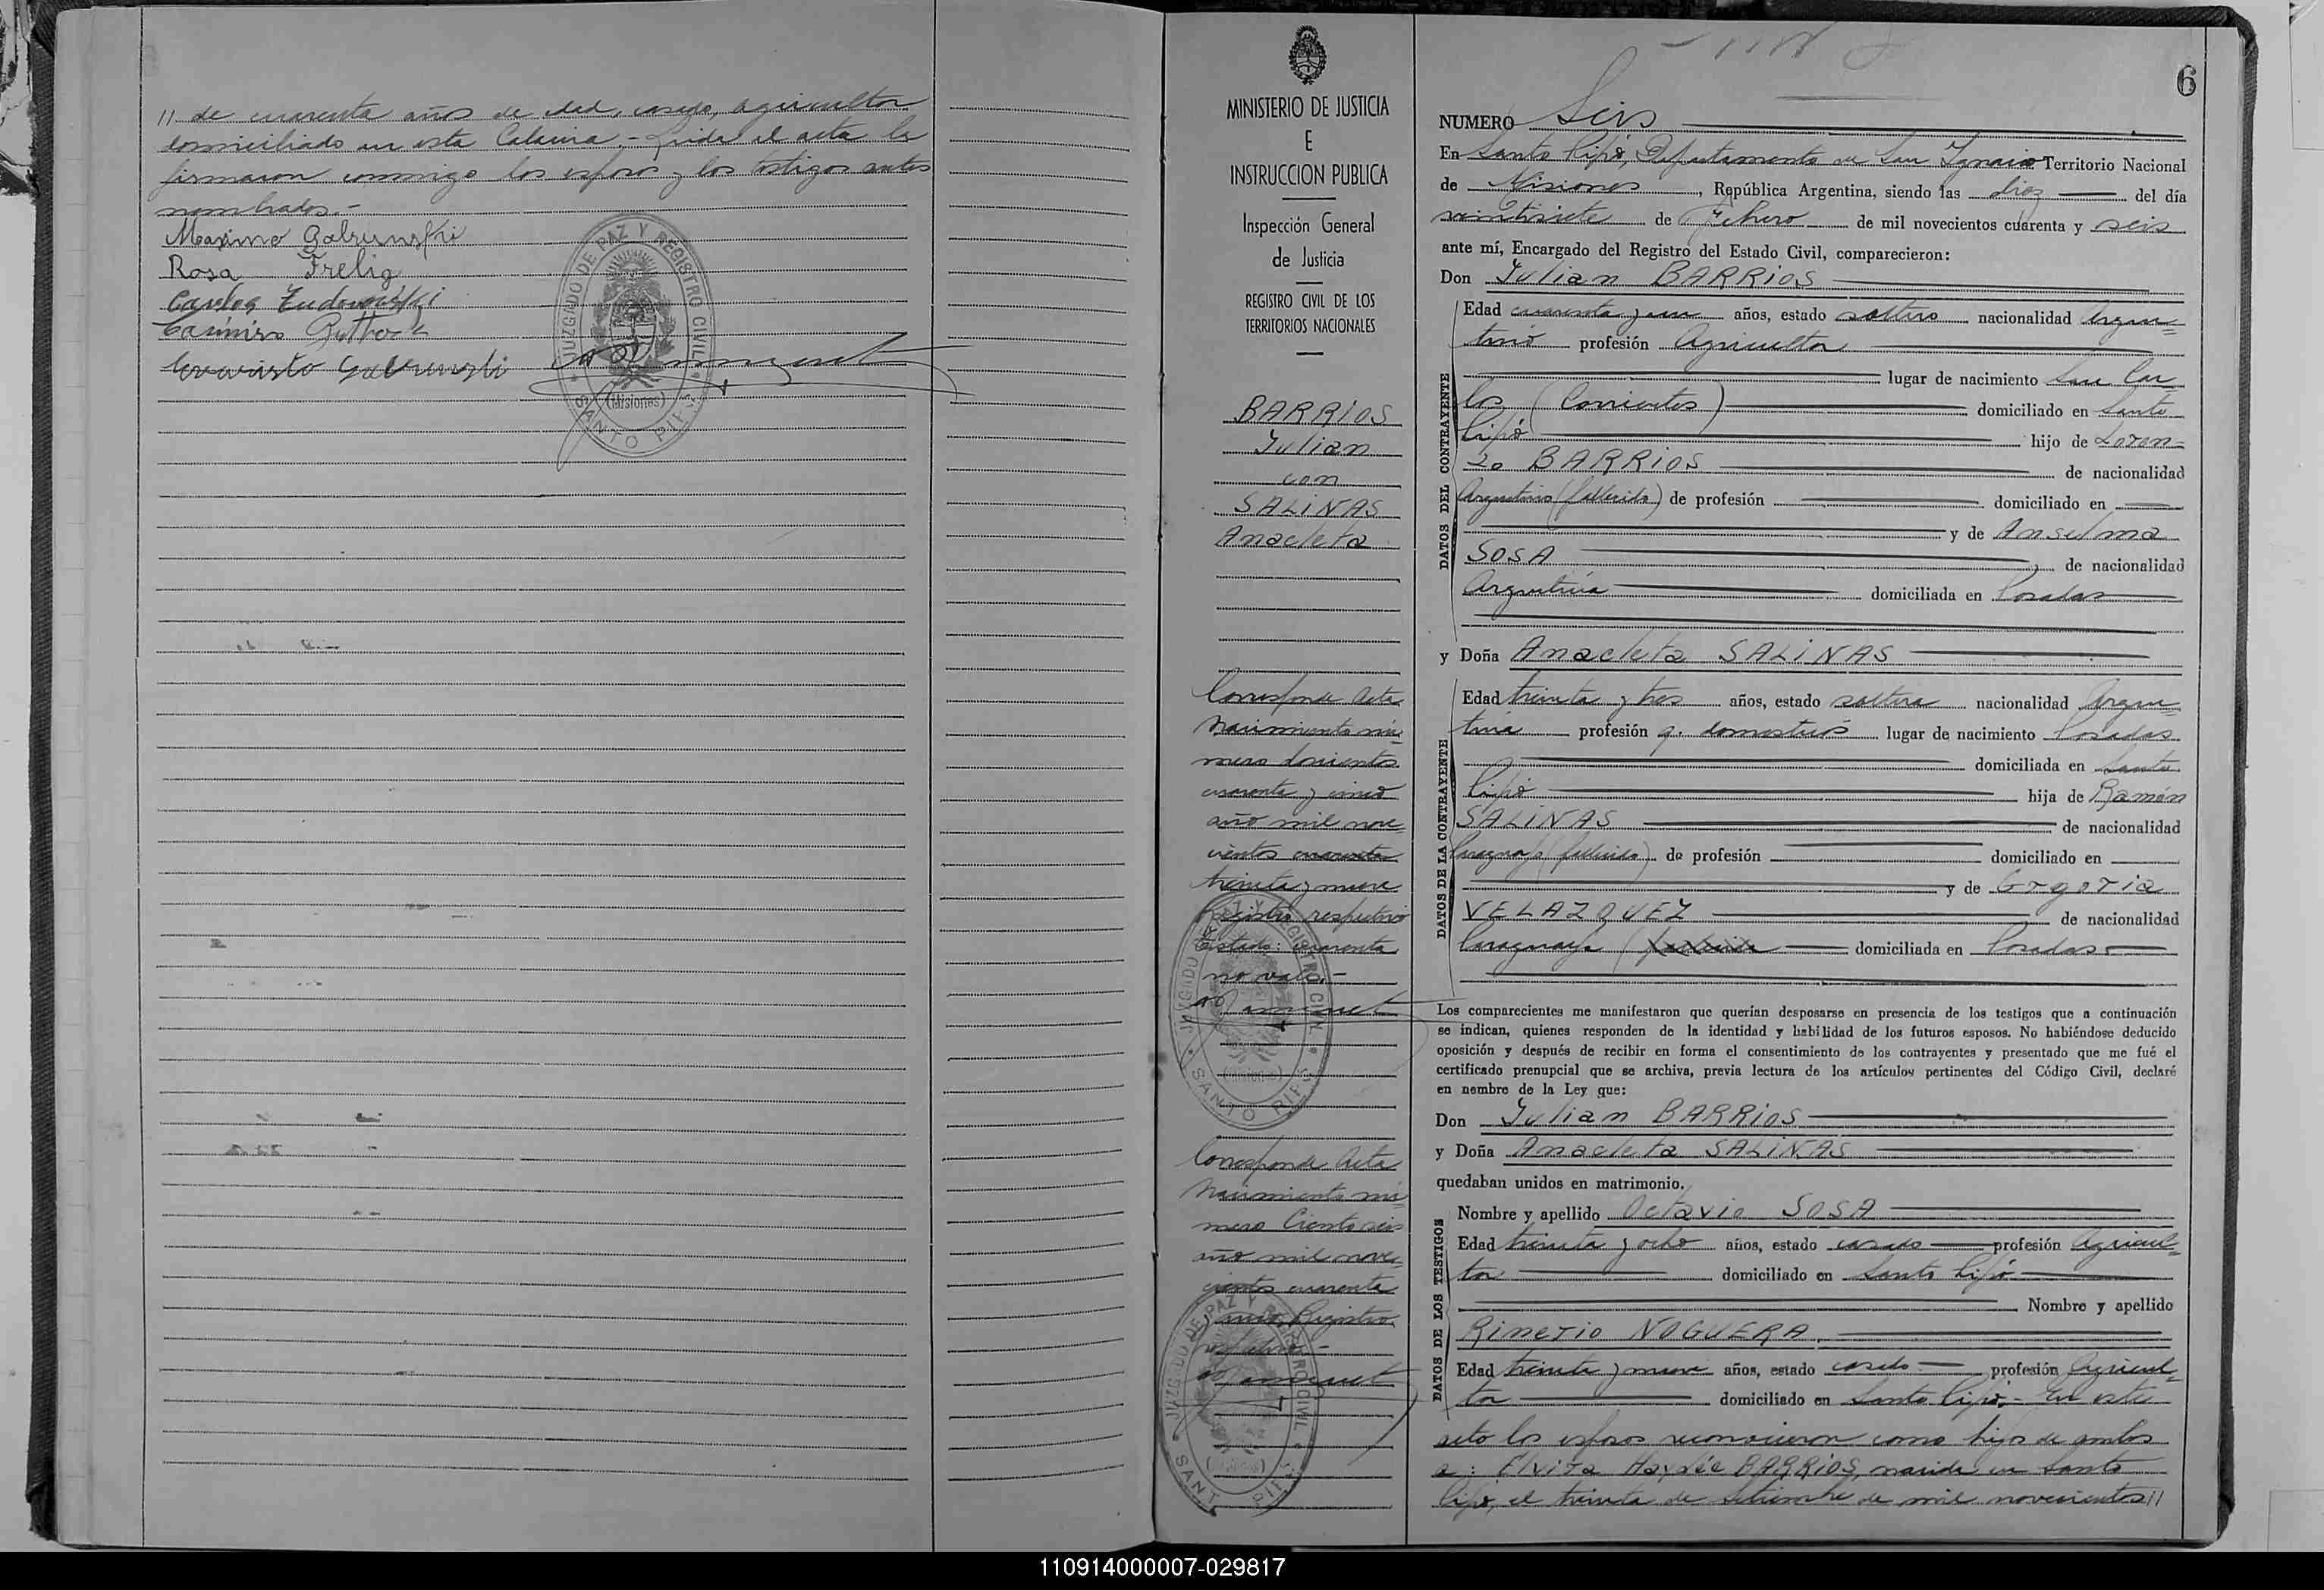 // de cuarenta años de edad, casado, agricultor
domiciliado en esta Colonia.- Leída el acta la
firmaron conmigo los esposos y los testigos antes
nombrados.-
Maximo Galrunski
Rosa Frelig
Carlos
Casimiro
JUZGADO DE PAZ Y REGISTRO CIVIL
(Misiones)
SANTO PIPÓ
MINISTERIO DE JUSTICIA
E
INSTRUCCION PUBLICA
Inspección General
de Justicia
REGISTRO CIVIL DE LOS
TERRITORIOS NACIONALES
BARRIOS
Julian
con
SALINAS
Anacleta
Corresponde Acta
Nacimiento nú-
mero doscientos
cuarenta y cinco
año mil nove-
cientos cuarenta
treinta y nueve
Registro respectivo
Testado: cuarenta
no vale.-
JUZGADO DE PAZ Y REGISTRO CIVIL
(Misiones)
SANTO PIPÓ
Corresponde Acta
Nacimiento nú-
mero Ciento seis
año mil nove-
cientos cuarenta
Registro
respectivo.-
JUZGADO DE PAZ Y REGISTRO CIVIL
(Misiones)
SANTO PIPÓ
6
NUMERO Seis
En Santo Pipó, Departamento de San Ignacio Territorio Nacional
de Misiones, República Argentina, siendo las diez del día
veintisiete de Febrero de mil novecientos cuarenta y seis
ante mí, Encargado del Registro del Estado Civil, comparecieron:
Don Julian BARRIOS
DATOS DEL CONTRAYENTE
Edad cuarenta y un años, estado soltero nacionalidad Argen-
tino profesión Agricultor
lugar de nacimiento San Car-
los (Corrientes) domiciliado en Santo
Pipó hijo de Loren-
zo BARRIOS de nacionalidad
Argentino (fallecido) de profesión domiciliado en
y de Anselma
SOSA, de nacionalidad
Argentina domiciliada en Posadas
y Doña Anacleta SALINAS
DATOS DE LA CONTRAYENTE
Edad treinta y tres años, estado soltera nacionalidad Argen-
tina profesión q. domesticos lugar de nacimiento Posadas
domiciliada en Santo
Pipó hija de Ramón
SALINAS de nacionalidad
Paraguayo (fallecido) de profesión domiciliado en
y de Gregoria
VELAZQUEZ de nacionalidad
Paraguaya domiciliada en Posadas
Los comparecientes me manifestaron que querían desposarse en presencia de los testigos que a continuación
se indican, quienes responden de la identidad y habilidad de los futuros esposos. No habiéndose deducido
oposición y después de recibir en forma el consentimiento de los contrayentes y presentado que me fué el
certificado prenupcial que se archiva, previa lectura de los artículos pertinentes del Código Civil, declaré
en nombre de la Ley que:
Don Julian BARRIOS
y Doña Anacleta SALINAS
quedaban unidos en matrimonio.
DATOS DE LOS TESTIGOS
Nombre y apellido Octavio SOSA
Edad treinta y ocho años, estado casado profesión Agricul-
tor domiciliado en Santo Pipó
Nombre y apellido
Rimerio NOGUERA.
Edad treinta y nueve años, estado casado profesión Agricul-
tor domiciliado en Santo Pipó.- En este
acto los esposos reconocieron como hijos de ambos
a: Elvira Haydée BARRIOS, nacida en Santo
Pipó, el treinta de Setiembre de mil novecientos //
110914000007-029817